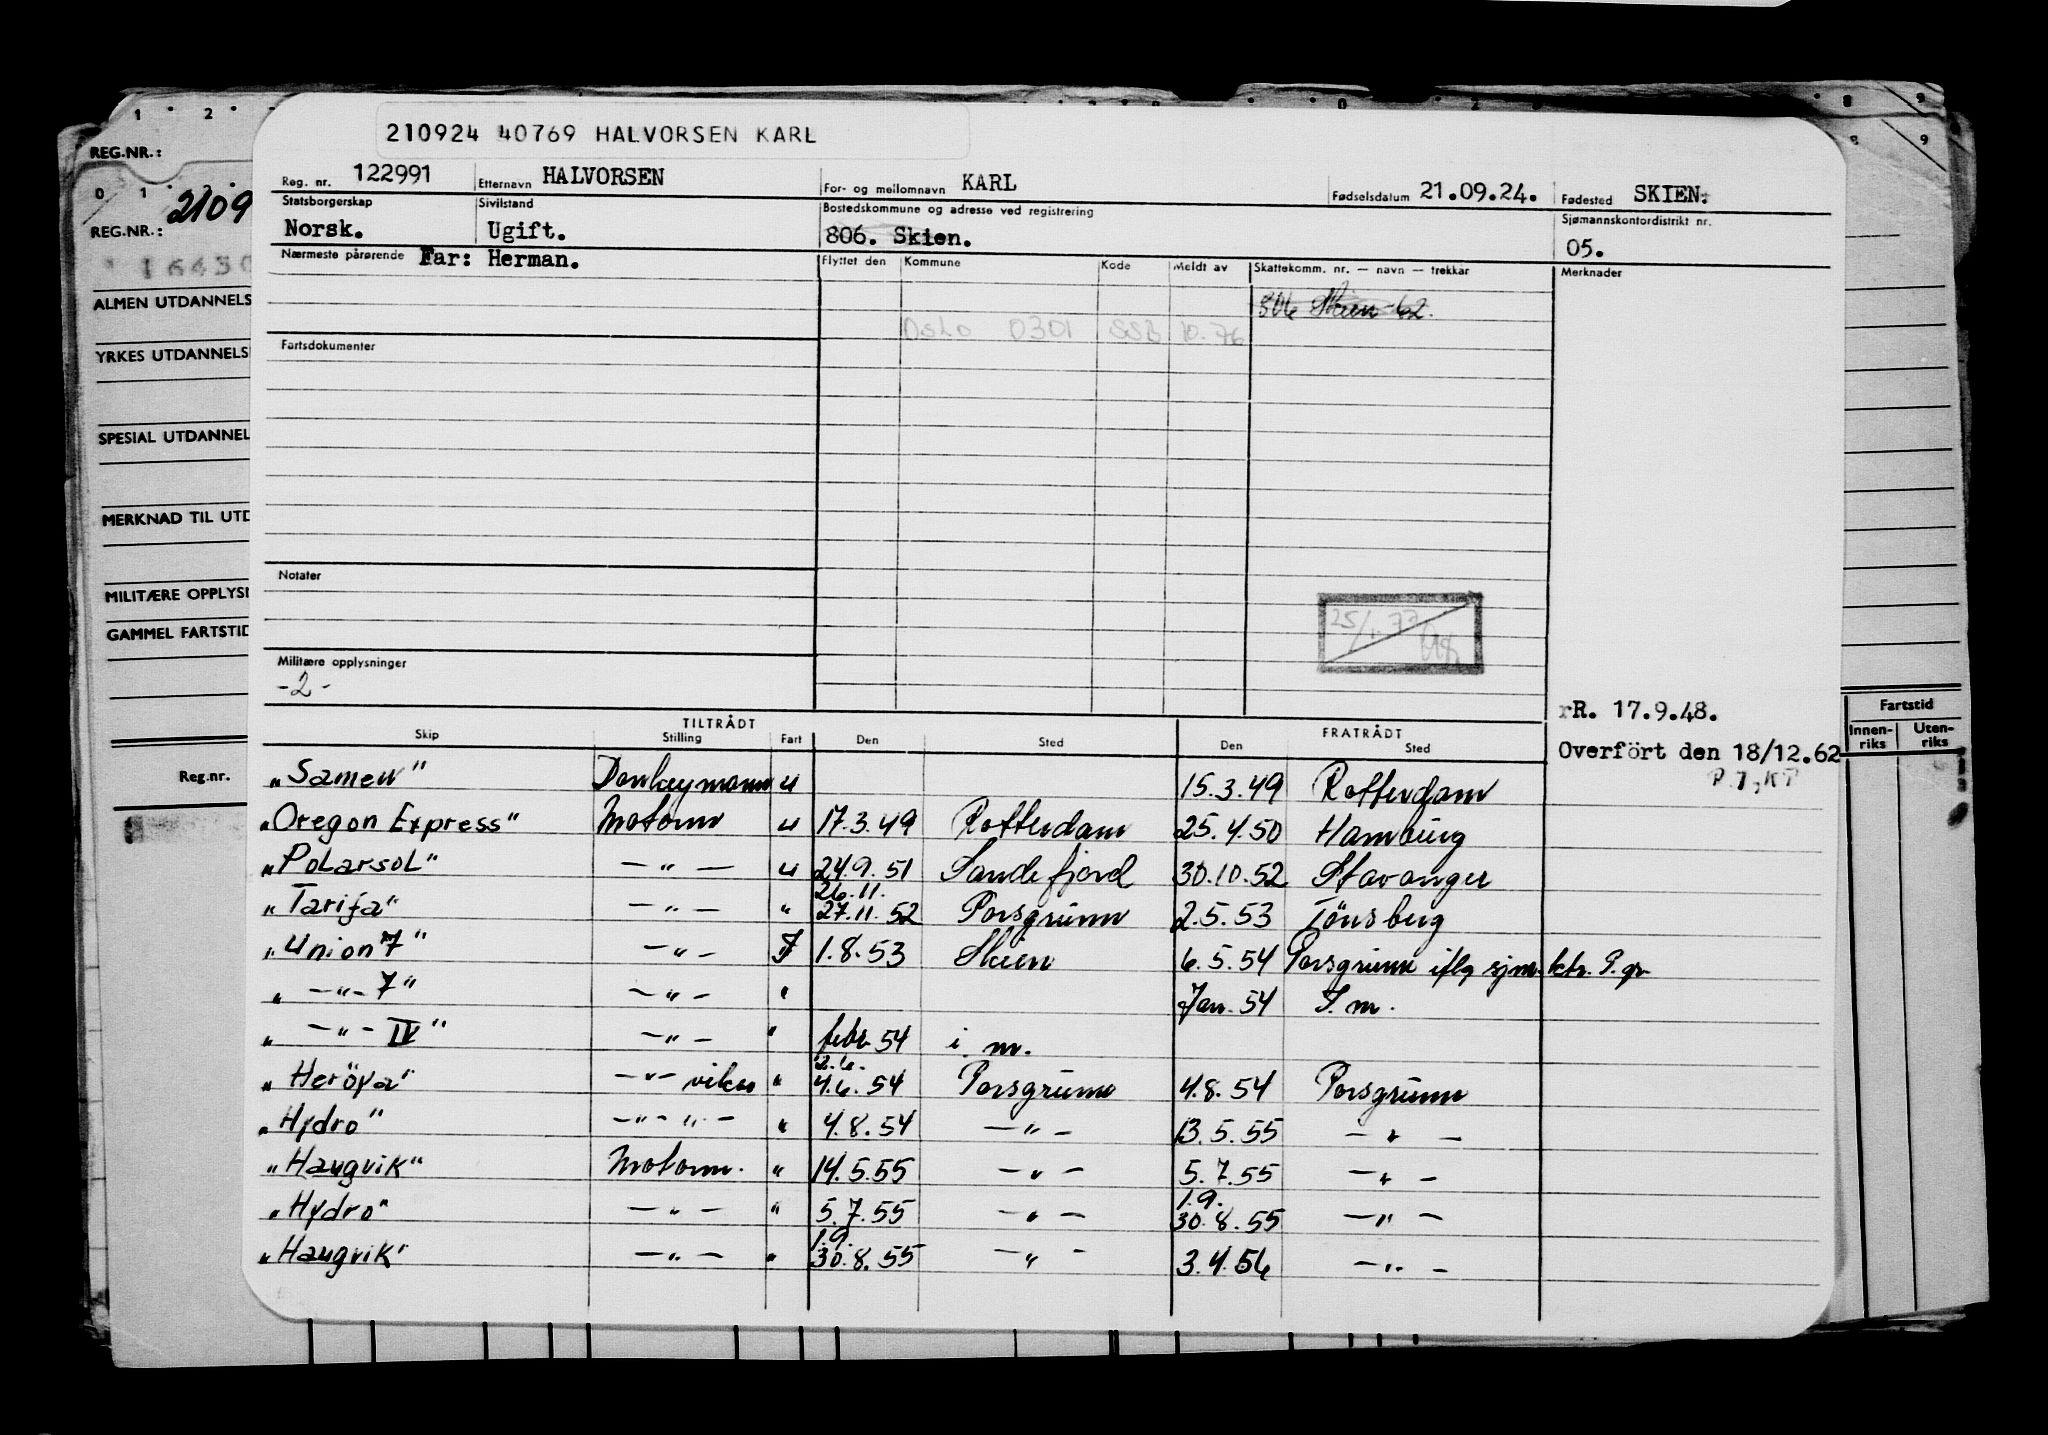 210924 40769 HALVORSEN KARL
Reg. nr. 122991 Etternavn HALVORSEN For- og mellomnavn KARL Fødselsdatum 21.09.24. Fødested SKIEN.
Statsborgerskap Sivilstand Bostedskommune og adresse ved registrering Sjømannskontordistrikt nr.
Norsk. Ugift. 806. Skien. 05.
Nærmeste pårørende Far: Herman. Flyttet den Kommune Kode Meldt av Skattekomm. nr. — navn — trekkår Merknader
806 Skien -62.
Oslo 0301 SSB 10.76
Fartsdokumenter
Notater
25/1.77
Militære opplysninger
-2-
rR. 17.9.48.
TILTRÅDT FRATRÅDT
Skip Stilling Fart Den Sted Den Sted
Overfört den 18/12.62
P.T, KP
"Samen" Donkeymann u 15.3.49 Rotterdam
"Oregon Express" Motorm u 17.3.49 Rotterdam 25.4.50 Hamburg
"Polarsol" —"— u 24.9.51 Sandefjord 30.10.52 Stavanger
26.11.
"Tarifa" —"— " 27.11.52 Porsgrunn 2.5.53 Tönsberg
"Union 7" —"— 1.8.53 Skien 6.5.54 Porsgrunn iflg sjm.ktr. P.gr
" —"— 7" —"— " Jan. 54 I.m.
" —"— IV" —"— " febr 54 i.m.
2.6.
"Heröya" —"— vikar " 4.6.54 Porsgrunn 4.8.54 Porsgrunn
"Hydro" —"—"— " 4.8.54 —"— 13.5.55 —"—
"Haugvik" Motorm. " 14.5.55 —"— 5.7.55 —"—
1.9.
"Hydro" —"— " 5.7.55 —"— 30.8.55 —"—
1.9.
"Haugvik" —"— " 30.8.55 —"— 3.4.56 —"—
REG.NR.:
2109
REG.NR.:
ALMEN UTDANNELS
YRKES UTDANNELS
SPESIAL UTDANNEL
MERKNAD TIL UTD
MILITÆRE OPPLYSN
GAMMEL FARTSTID
Reg.nr.
Fartstid
Innen-riks Uten-riks